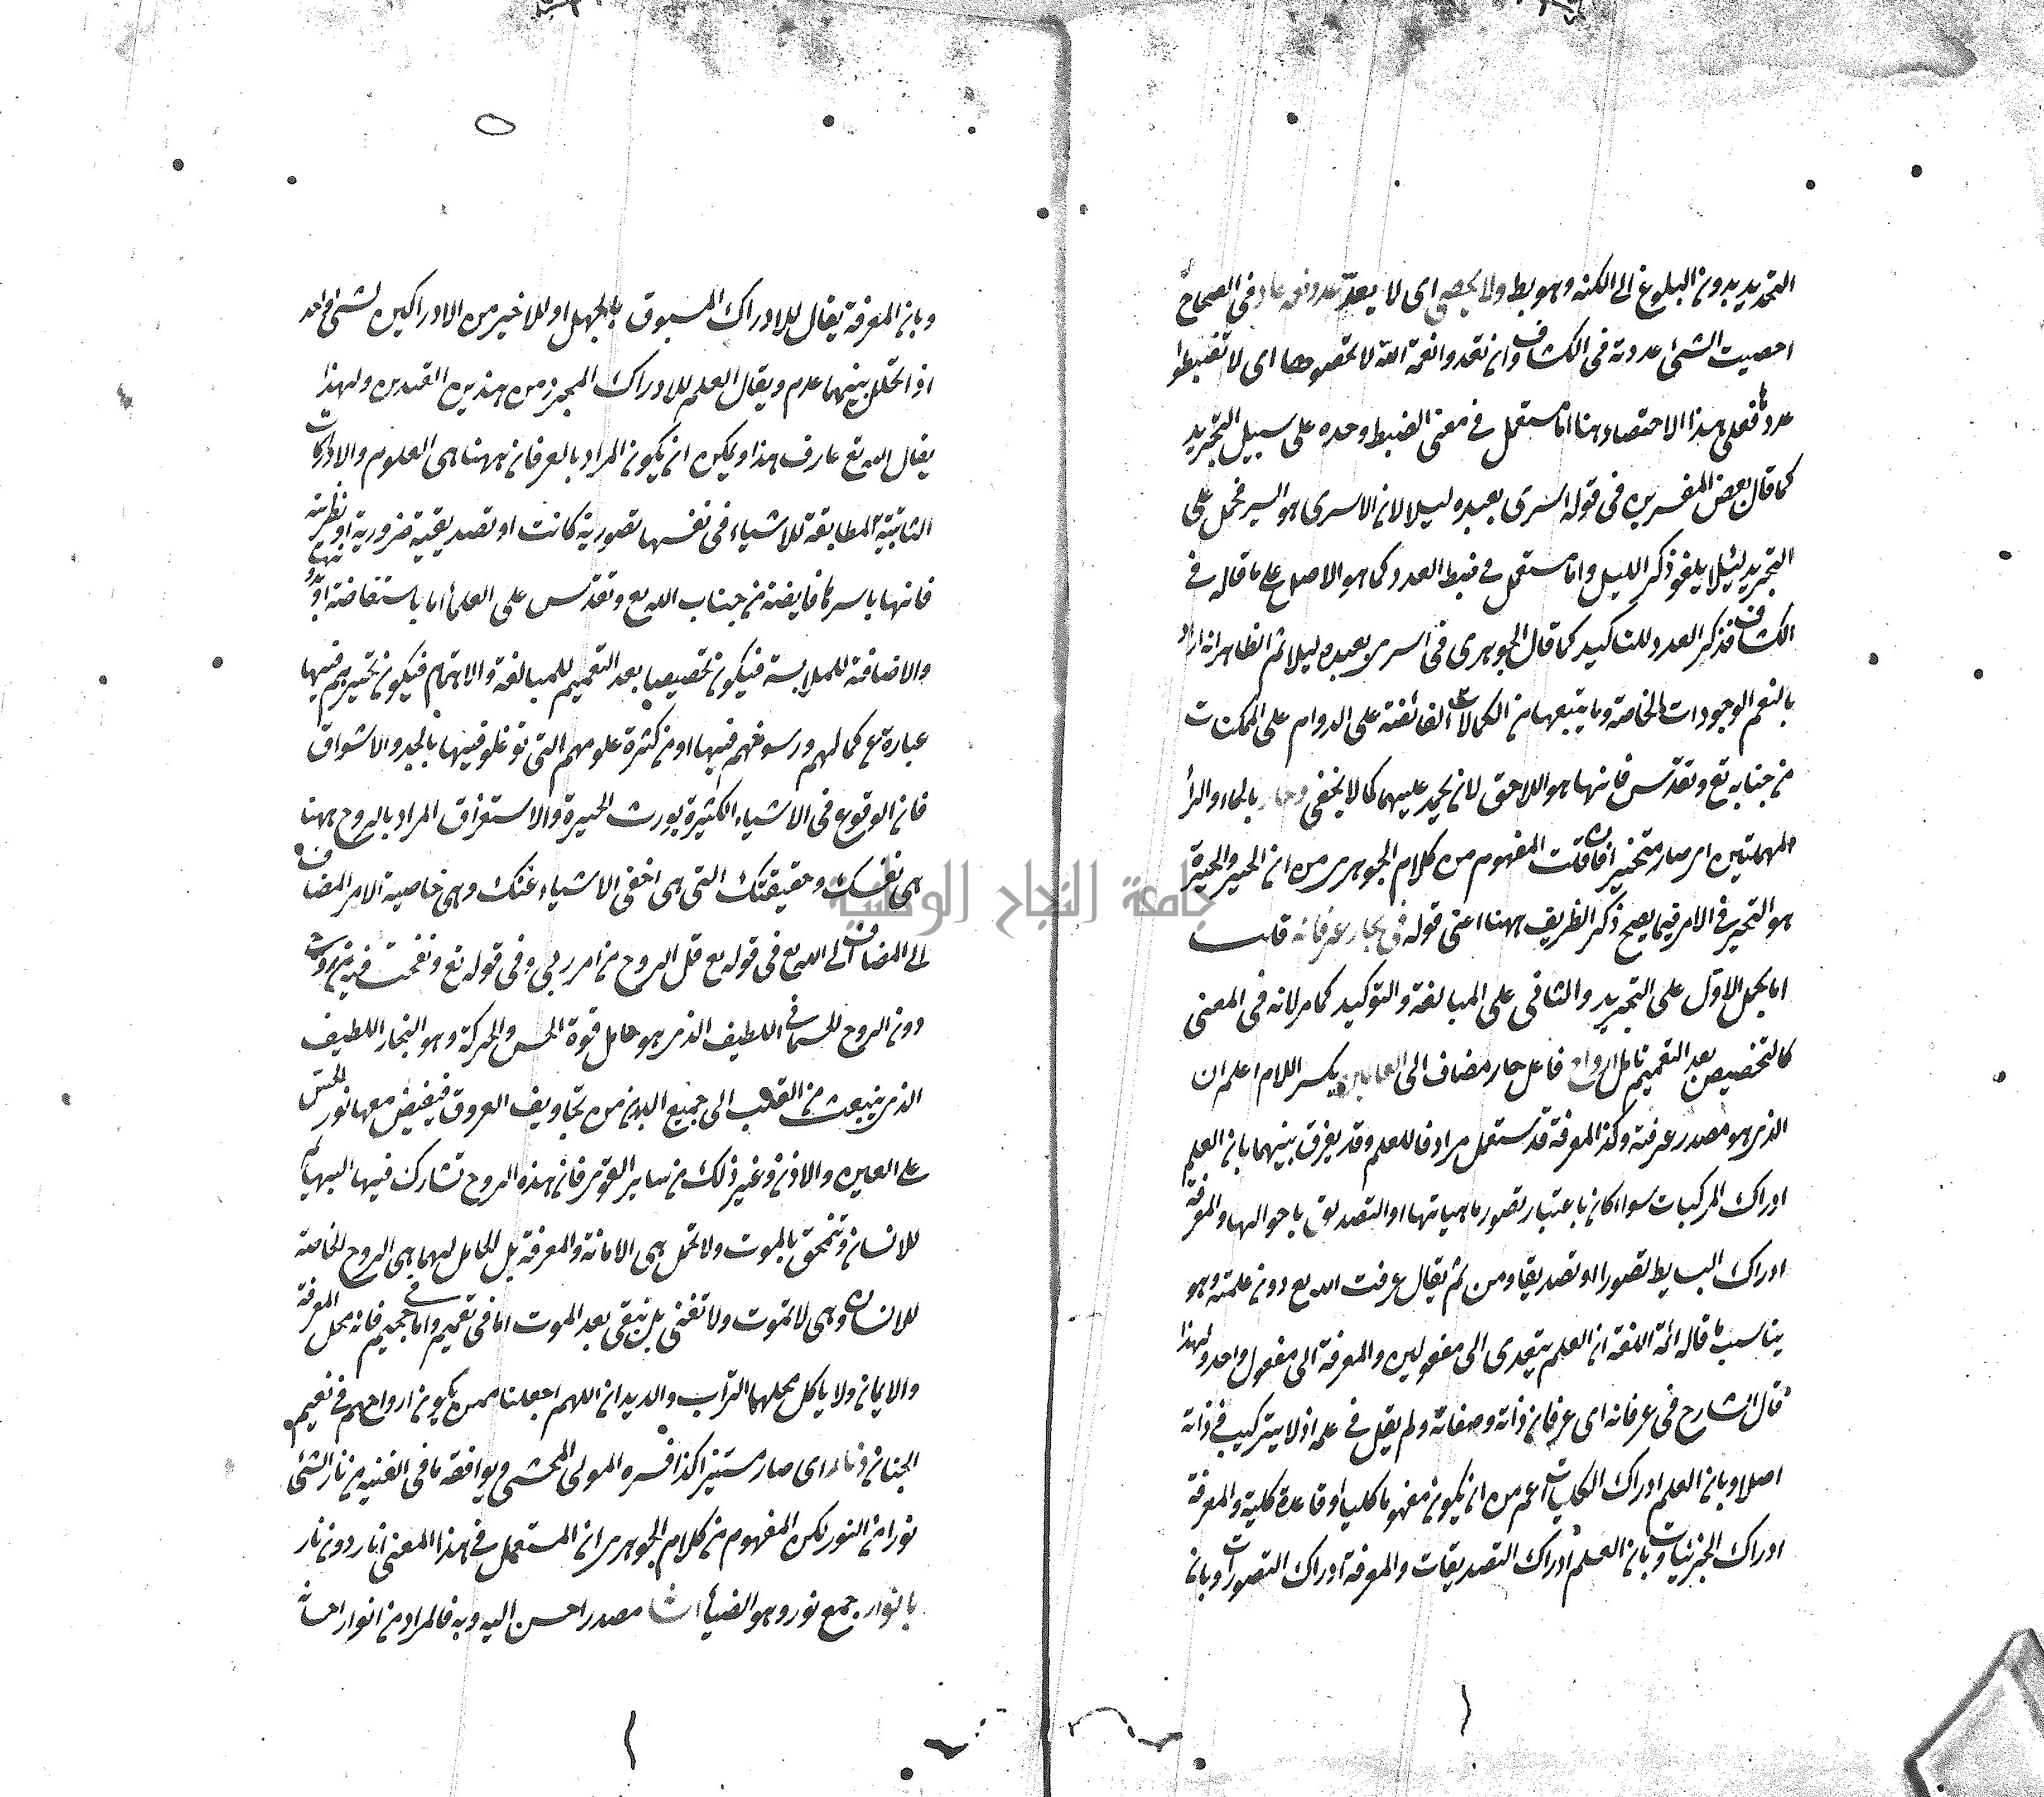 التحديد بدون البلوغ الى الكنه وهو بط ولا يحصى اى لا يعدّ عدد نعمه عاد فى الصحاح
احصيت الشئ عددته فى الكشاف وان تعدوا نعمة الله لا تحصوها اى لا تضبطوا
عددها فعلى هذا الاحصاء هنا اما مستعمل فى معنى الضبط وحده على سبيل التجريد
كما قال بعض المفسرين فى قوله اسرى بعبده ليلا لان الاسرى هو السير فحمل على
التجريد لئيلا يلغو ذكر الليل واما مستعمل فى ضبط العدد كما هو الاصل على ما قاله فى
الكشاف فذكر العدد للتاكيد كما قال الجوهرى فى اسرى بعبده ليلا ثم الظاهر انه اراد
بالنعم الوجودات الخاصة وما يتبعها من الكمالات الفائضة على الدوام على الممكنات
من جنابه تع وتقدس فانها هو اللاحق لان يحمد عليهما كما لا يخفى وحار بالحاء والراء
المهملتين اى صار متحيرا فان قلت المفهوم من كلام الجوهرى من ان الحير والحيرة
هو التحير فى الامر فيما يصح ذكر الظريف ههنا اعنى قوله فى بحار عرفانه قلت
اما يحمل الاول على التجريد والثانى على المبالغة والتوكيد كما مر لانه فى المعنى
كالتخصيص بعد التعميم تامل ارواح فاعل حار مضاف الى العالمين بكسر اللام اعلم ان
الذى هو مصدر عرفته وكذا المعرفة قد تستعمل مرادفا للعلم وقد يفرق بينهما بان العلم
ادراك المركبات سوا اكان باعتبار تصور ماهياتها او التصديق باحوالها والمعرفة
ادراك البسايط تصورا او تصديقا ومن ثم يقال عرفت الله تع دون علمته وهو
يناسب ما قاله ائمة اللغة ان العلم يتعدى الى مفعولين والمعرفة الى مفعول واحد ولهذا
قال الشارح فى عرفانه اى عرفان ذاته وصفاته ولم يقل فى علمه اذ لا يتركيب فى ذاته
اصلا وبان العلم ادراك الكليات اعم من ان يكون مفهوما كليا او قاعدة كلية والمعرفة
ادراك الجزئيات وبان العلم ادراك التصديقات والمعرفة ادراك التصورات وبان
وبان المعرفة يقال للادراك المسبوق بالجهل او للاخير من الادراكين لشئ واحد
اذا تخلل بينهما عدم ويقال العلم للادراك المجرد من هذين القيدين ولهذا
يقال الله تع عارف هذا ويمكن ان يكون المراد بالعرفان ههنا هى العلوم والادراكات
الثابتة المطابقة للاشياء فى نفسها تصورية كانت او تصديقية ضرورية او نظرية
فانها باسرها فايضة من جناب الله تع وتقدس على العلماء اما باستفاضة او
والاضافة للملابسة فيكون تخصيصا بعد التعميم للمبالغة والاهتمام فيكون تحيرهم فيها
عبارة عن كمالهم ورسوخهم فيها او من كثرة علومهم التى توغلوا فيها بالجد والاشواق
فان الوقوع فى الاشياء الكثيرة يورث الحيرة والاستغراق المراد بالروح ههنا
هى نفسك وحقيقتك التى هى اخفى الاشياء عنك وهى خاصية الامر المضاف
الى المضاف الى الله تع فى قوله تع قل الروح من امر ربى وفى قوله تع ونفخت فيه من روحى
دون الروح الجسمانى اللطيف الذى هو حامل قوة الحس والحركة وهو البخار اللطيف
الذى ينبعث من القلب الى جميع البدن من تجاويف العروق فيفيض معها نور الحس
على العين والاذن وغير ذلك من ساير القوى فان هذه الروح تشارك فيها البهايم
للانسان وتنمحق بالموت ولا تحمل هى الامانة والمعرفة بل الحامل لهما هى الروح الخاصة
للانسان وهى لا تموت ولا تفنى بل يبقى بعد الموت اما فى نعيم واما فى جحيم فانه محل المعرفة
والايمان ولا ياكل محلهما التراب والديدان اللهم اجعلنا ممن يكون ارواحهم فى نعيم
الجنان وانار اى صار مستنيرا كذا فسره المولى المحشى ويوافقه ما فى الغنية من نار الشئ
نورا من النور لكن المفهوم من كلام الجوهرى ان المستعمل فى هذا المعنى انار دون نار
بانوار جمع نور وهو الضياء مصدر احسن اليه وبه فالمراد من انوار احسانه
جامعة النجاح الوطنية